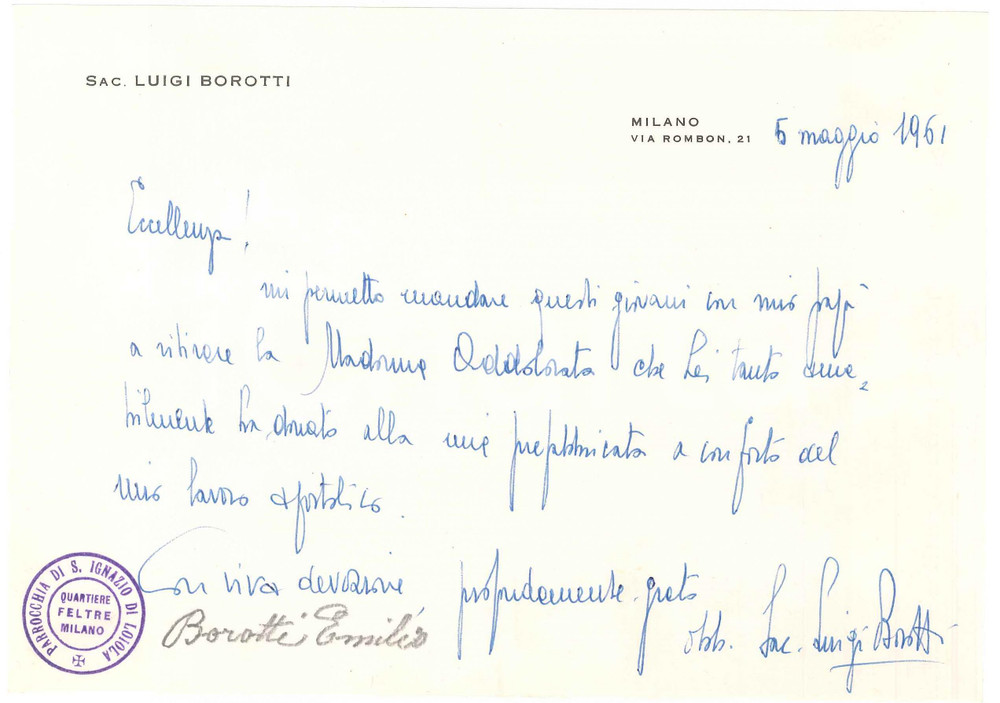 SAC. LUIGI BOROTTI
MILANO
VIA ROMBON, 21
5 maggio 1961
Eccellenza!
mi permetto mandare questi giovani con mio papà
a ritirare la Madonna Addolorata che Lei tanto ama=
bilmente ha donato alla mia prefabbricata a conforto del
mio lavoro apostolico.
Con viva devozione profondamente grato
obb. Sac. Luigi Borotti
Borotti Emilio
PARROCCHIA DI S. IGNAZIO DI LOIOLA
QUARTIERE
FELTRE
MILANO